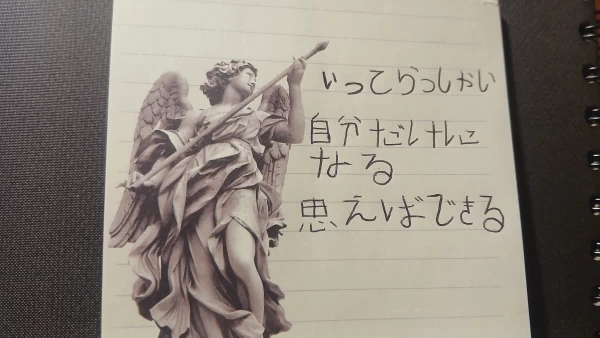 いってらっしかい
自分だけに
なる
思えばできる